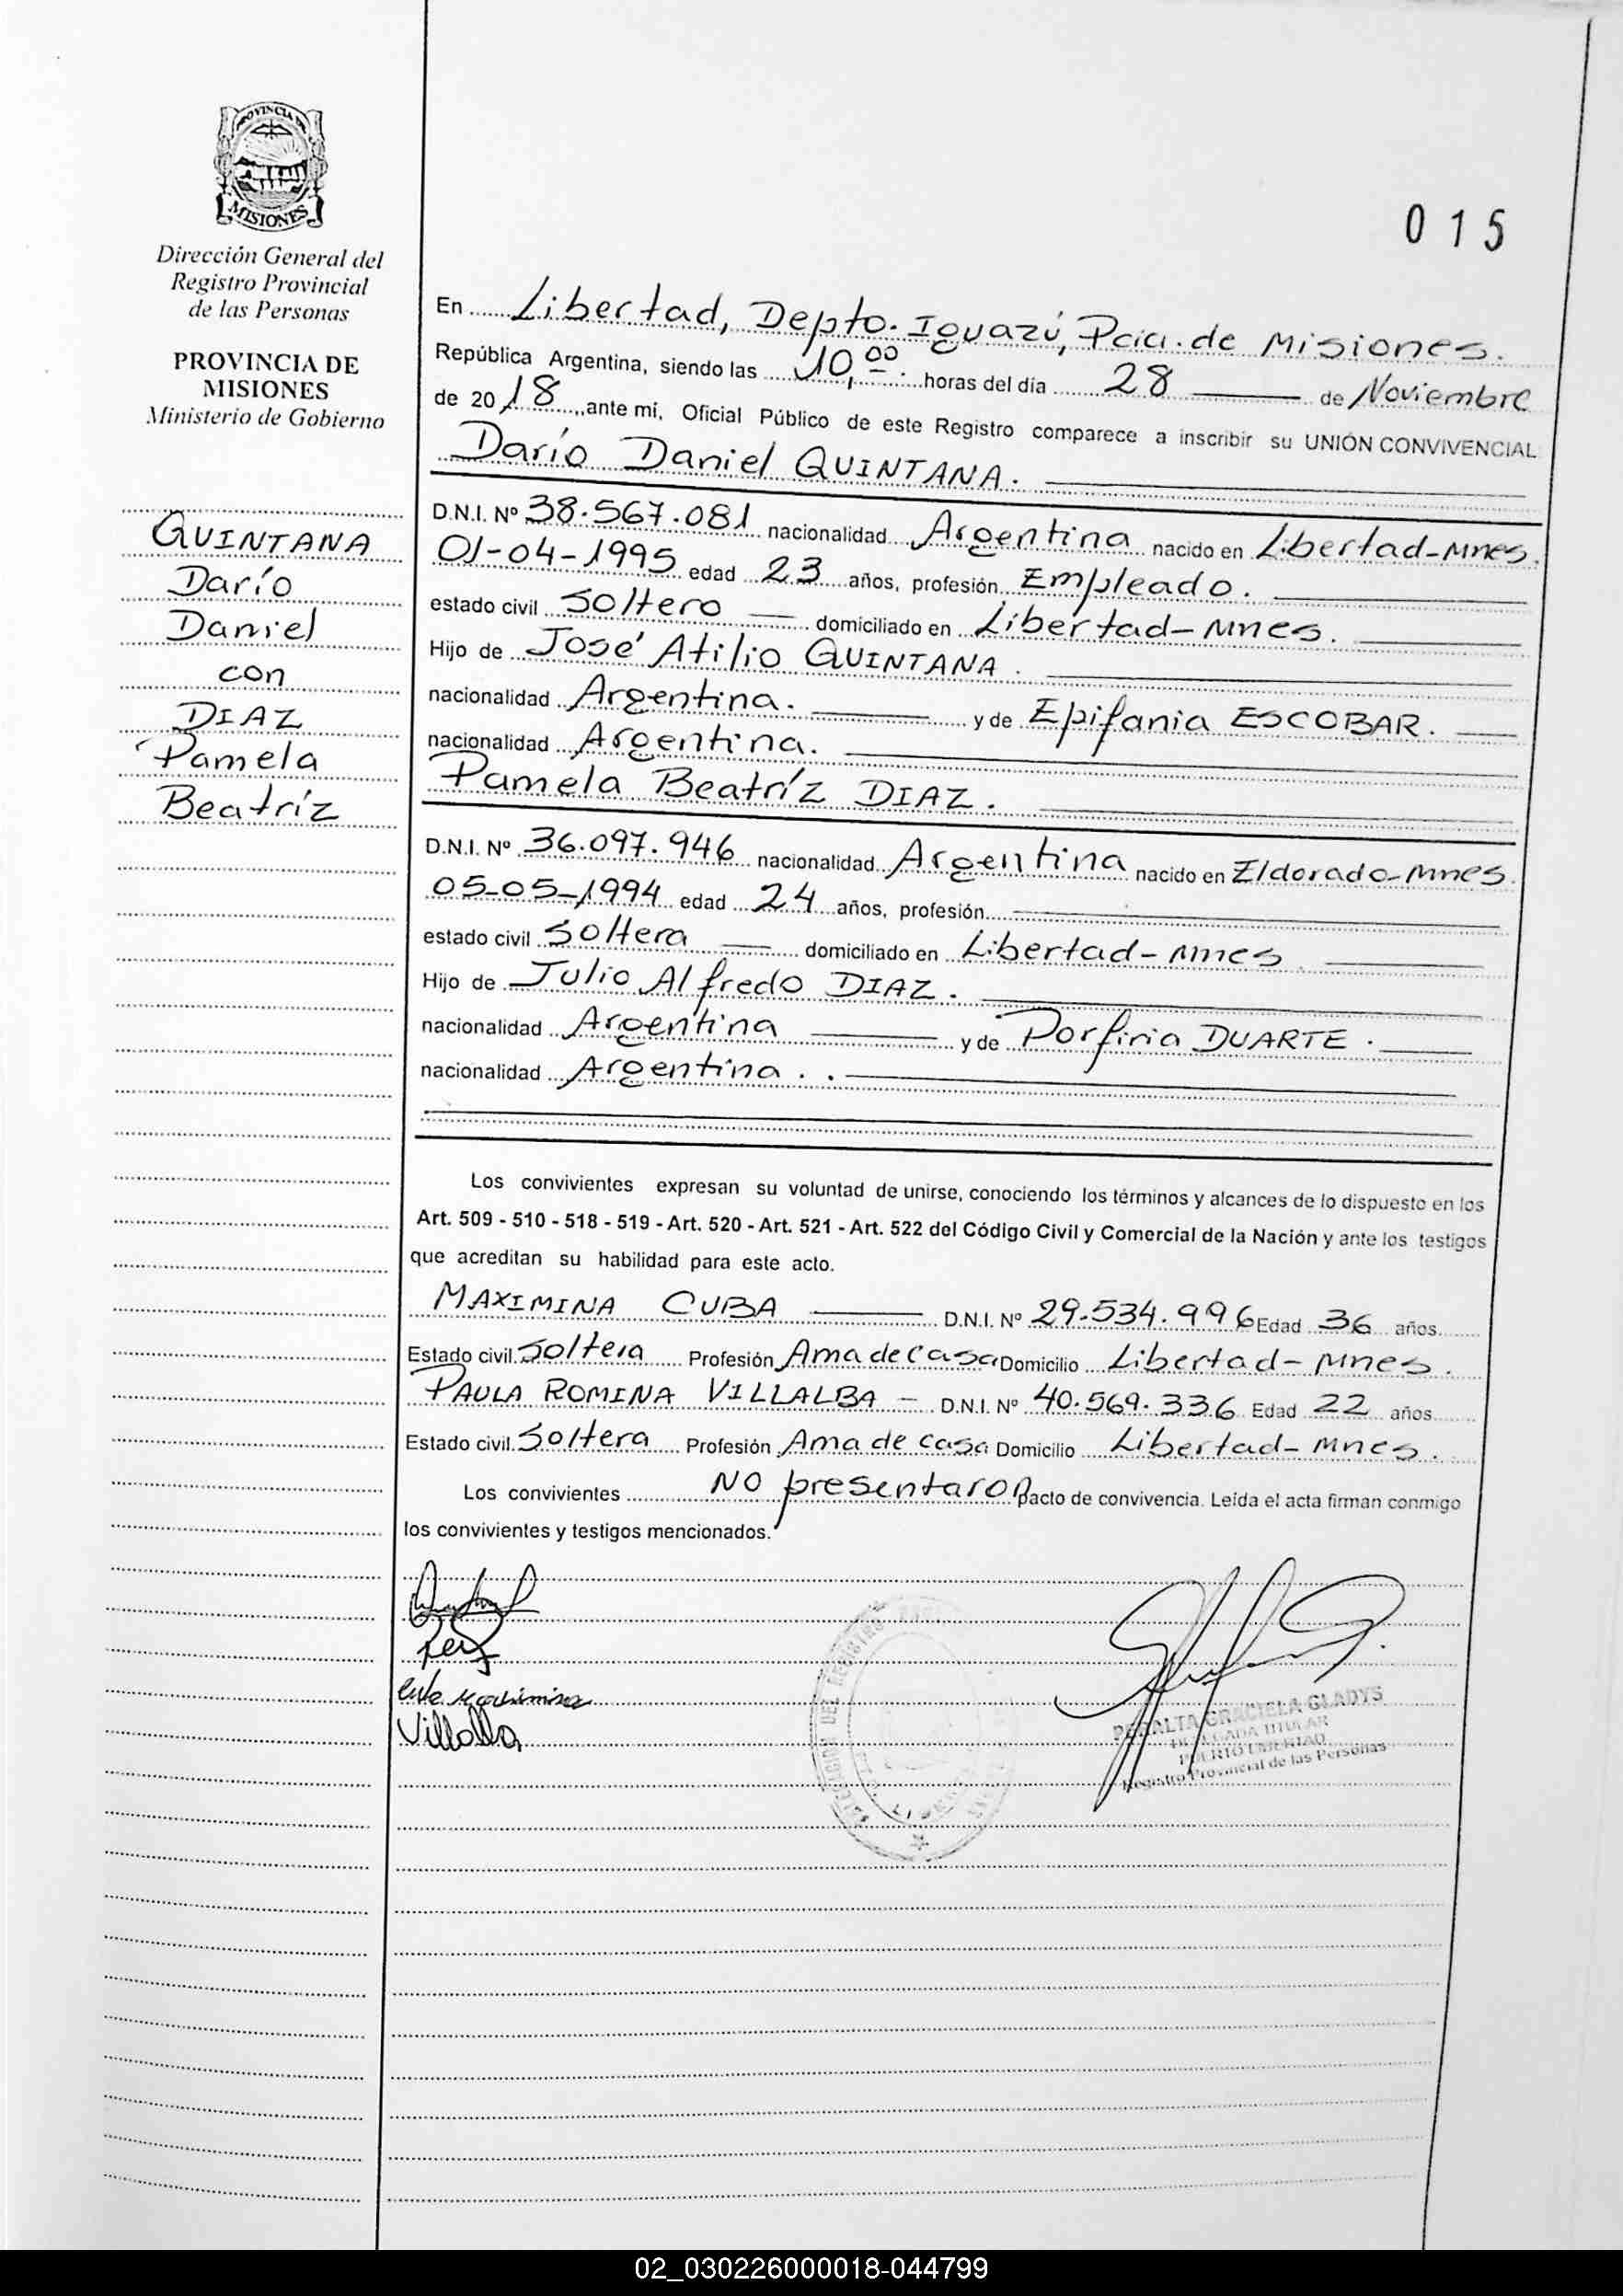 PROVINCIA DE
MISIONES
Dirección General del
Registro Provincial
de las Personas
PROVINCIA DE
MISIONES
Ministerio de Gobierno
QUINTANA
Darío
Daniel
con
DIAZ
Pamela
Beatríz
015
En Libertad, Depto. Iguazú, Pcia. de Misiones.
República Argentina, siendo las 10,00 horas del día 28 de Noviembre
de 2018, ante mí, Oficial Público de este Registro comparece a inscribir su UNIÓN CONVIVENCIAL
Darío Daniel QUINTANA.
D.N.I. Nº 38.567.081 nacionalidad Argentina nacido en Libertad-Mnes.
01-04-1995 edad 23 años, profesión Empleado.
estado civil Soltero domiciliado en Libertad-Mnes.
Hijo de José Atilio QUINTANA.
nacionalidad Argentina. y de Epifania ESCOBAR.
nacionalidad Argentina.
Pamela Beatríz DIAZ.
D.N.I. Nº 36.097.946 nacionalidad Argentina nacido en Eldorado-Mnes.
05-05-1994 edad 24 años, profesión
estado civil Soltera domiciliado en Libertad-Mnes
Hijo de Julio Alfredo DIAZ.
nacionalidad Argentina y de Porfiria DUARTE.
nacionalidad Argentina..
Los convivientes expresan su voluntad de unirse, conociendo los términos y alcances de lo dispuesto en los
Art. 509 - 510 - 518 - 519 - Art. 520 - Art. 521 - Art. 522 del Código Civil y Comercial de la Nación y ante los testigos
que acreditan su habilidad para este acto.
MAXIMINA CUBA D.N.I. Nº 29.534.996 Edad 36 años
Estado civil Soltera Profesión Ama de casa Domicilio Libertad-Mnes.
PAULA ROMINA VILLALBA - D.N.I. Nº 40.569.336 Edad 22 años
Estado civil Soltera Profesión Ama de casa Domicilio Libertad-Mnes.
Los convivientes NO presentaron pacto de convivencia. Leída el acta firman conmigo
los convivientes y testigos mencionados.
Villalba
PERALTA GRACIELA GLADYS
DELEGADA TITULAR
PUERTO LIBERTAD
Registro Provincial de las Personas
02_030226000018-044799